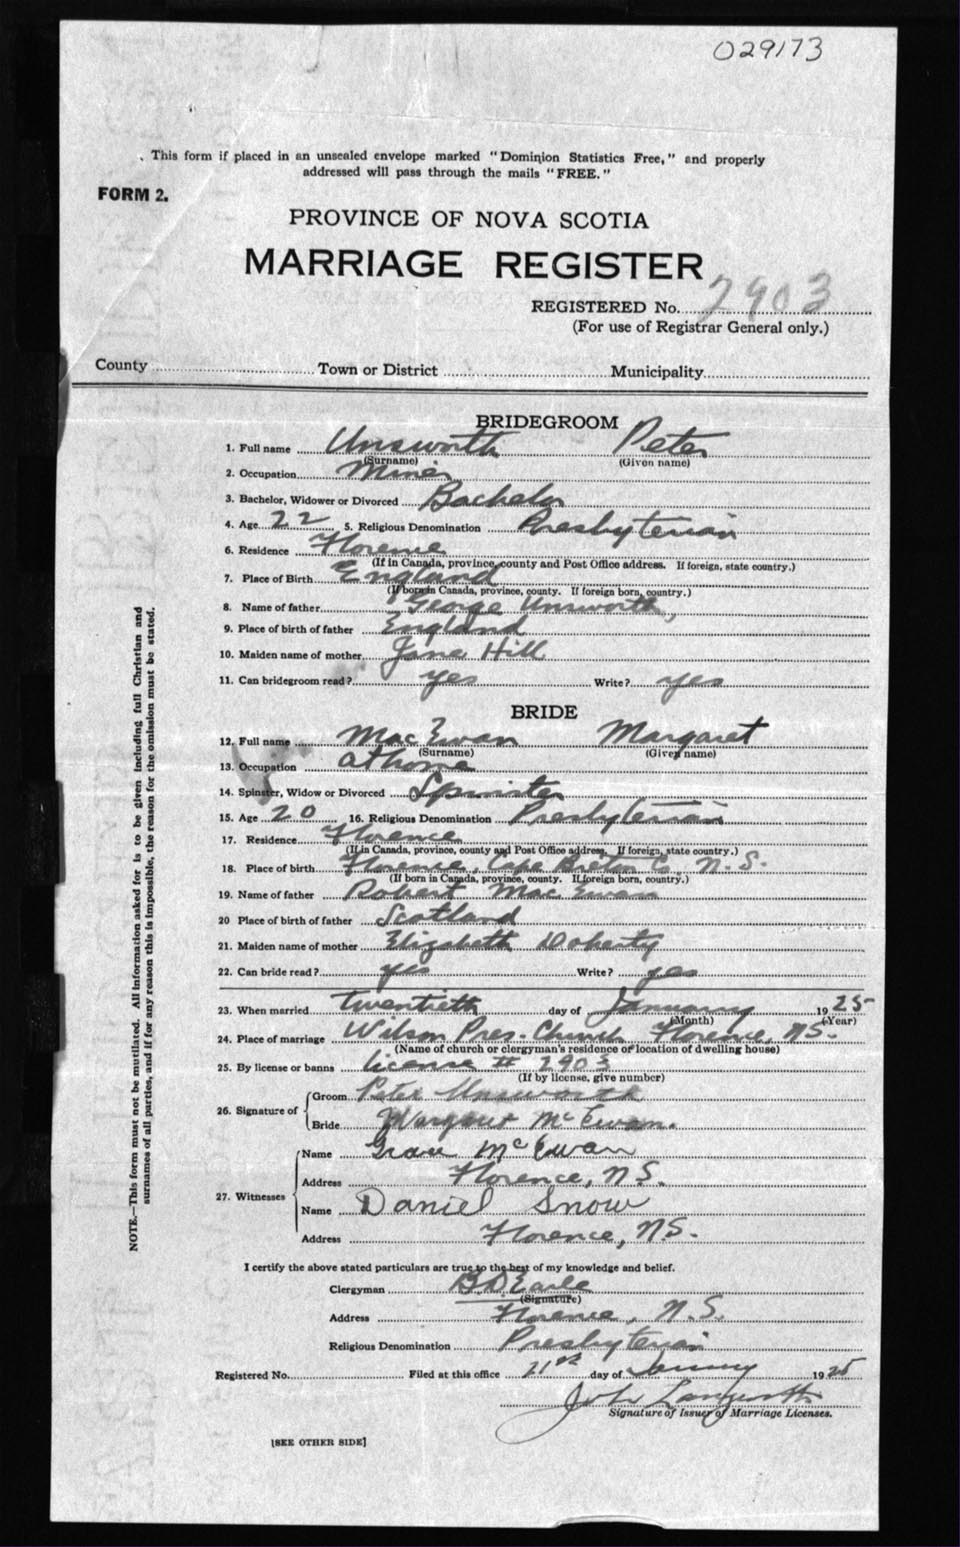 029173
This form if placed in an unsealed envelope marked "Dominion Statistics Free," and properly
addressed will pass through the mails "FREE."
FORM 2.
PROVINCE OF NOVA SCOTIA
MARRIAGE REGISTER
REGISTERED No. 2903
(For use of Registrar General only.)
County Town or District Municipality
BRIDEGROOM
1. Full name Unsworth Peter
(Surname) (Given name)
2. Occupation Miner
3. Bachelor, Widower or Divorced Bachelor
4. Age 22 5. Religious Denomination Presbyterian
6. Residence Florence
(If in Canada, province, county and Post Office address. If foreign, state country.)
7. Place of Birth England
(If born in Canada, province, county. If foreign born, country.)
8. Name of father George Unsworth,
9. Place of birth of father England
10. Maiden name of mother Jane Hill
11. Can bridegroom read? yes Write? yes
BRIDE
12. Full name MacEwan Margaret
(Surname) (Given name)
13. Occupation at home
14. Spinster, Widow or Divorced Spinster
15. Age 20 16. Religious Denomination Presbyterian
17. Residence Florence
(If in Canada, province, county and Post Office address. If foreign, state country.)
18. Place of birth Florence, Cape Breton C., N.S.
(If born in Canada, province, county. If foreign born, country.)
19. Name of father Robert MacEwan
20 Place of birth of father Scotland
21. Maiden name of mother Elizabeth Doherty
22. Can bride read? yes Write? yes
23. When married twentieth day of January 1925
(Month) (Year)
24. Place of marriage Wilson Pres. Church Florence, N.S.
(Name of church or clergyman's residence or location of dwelling house)
25. By license or banns license # 2903
(If by license, give number)
26. Signature of Groom Peter Unsworth
Bride Margaret McEwan.
27. Witnesses Name Grace McEwan
Address Florence, N.S.
Name Daniel Snow
Address Florence, N.S.
I certify the above stated particulars are true to the best of my knowledge and belief.
Clergyman B D Earle
(Signature)
Address Florence, N.S.
Religious Denomination Presbyterian
Registered No. Filed at this office 21st day of January 1925
John
Signature of Issuer of Marriage Licenses.
[SEE OTHER SIDE]
NOTE.—This form must not be mutilated. All information asked for is to be given including full Christian and
surnames of all parties, and if for any reason this is impossible, the reason for the omission must be stated.